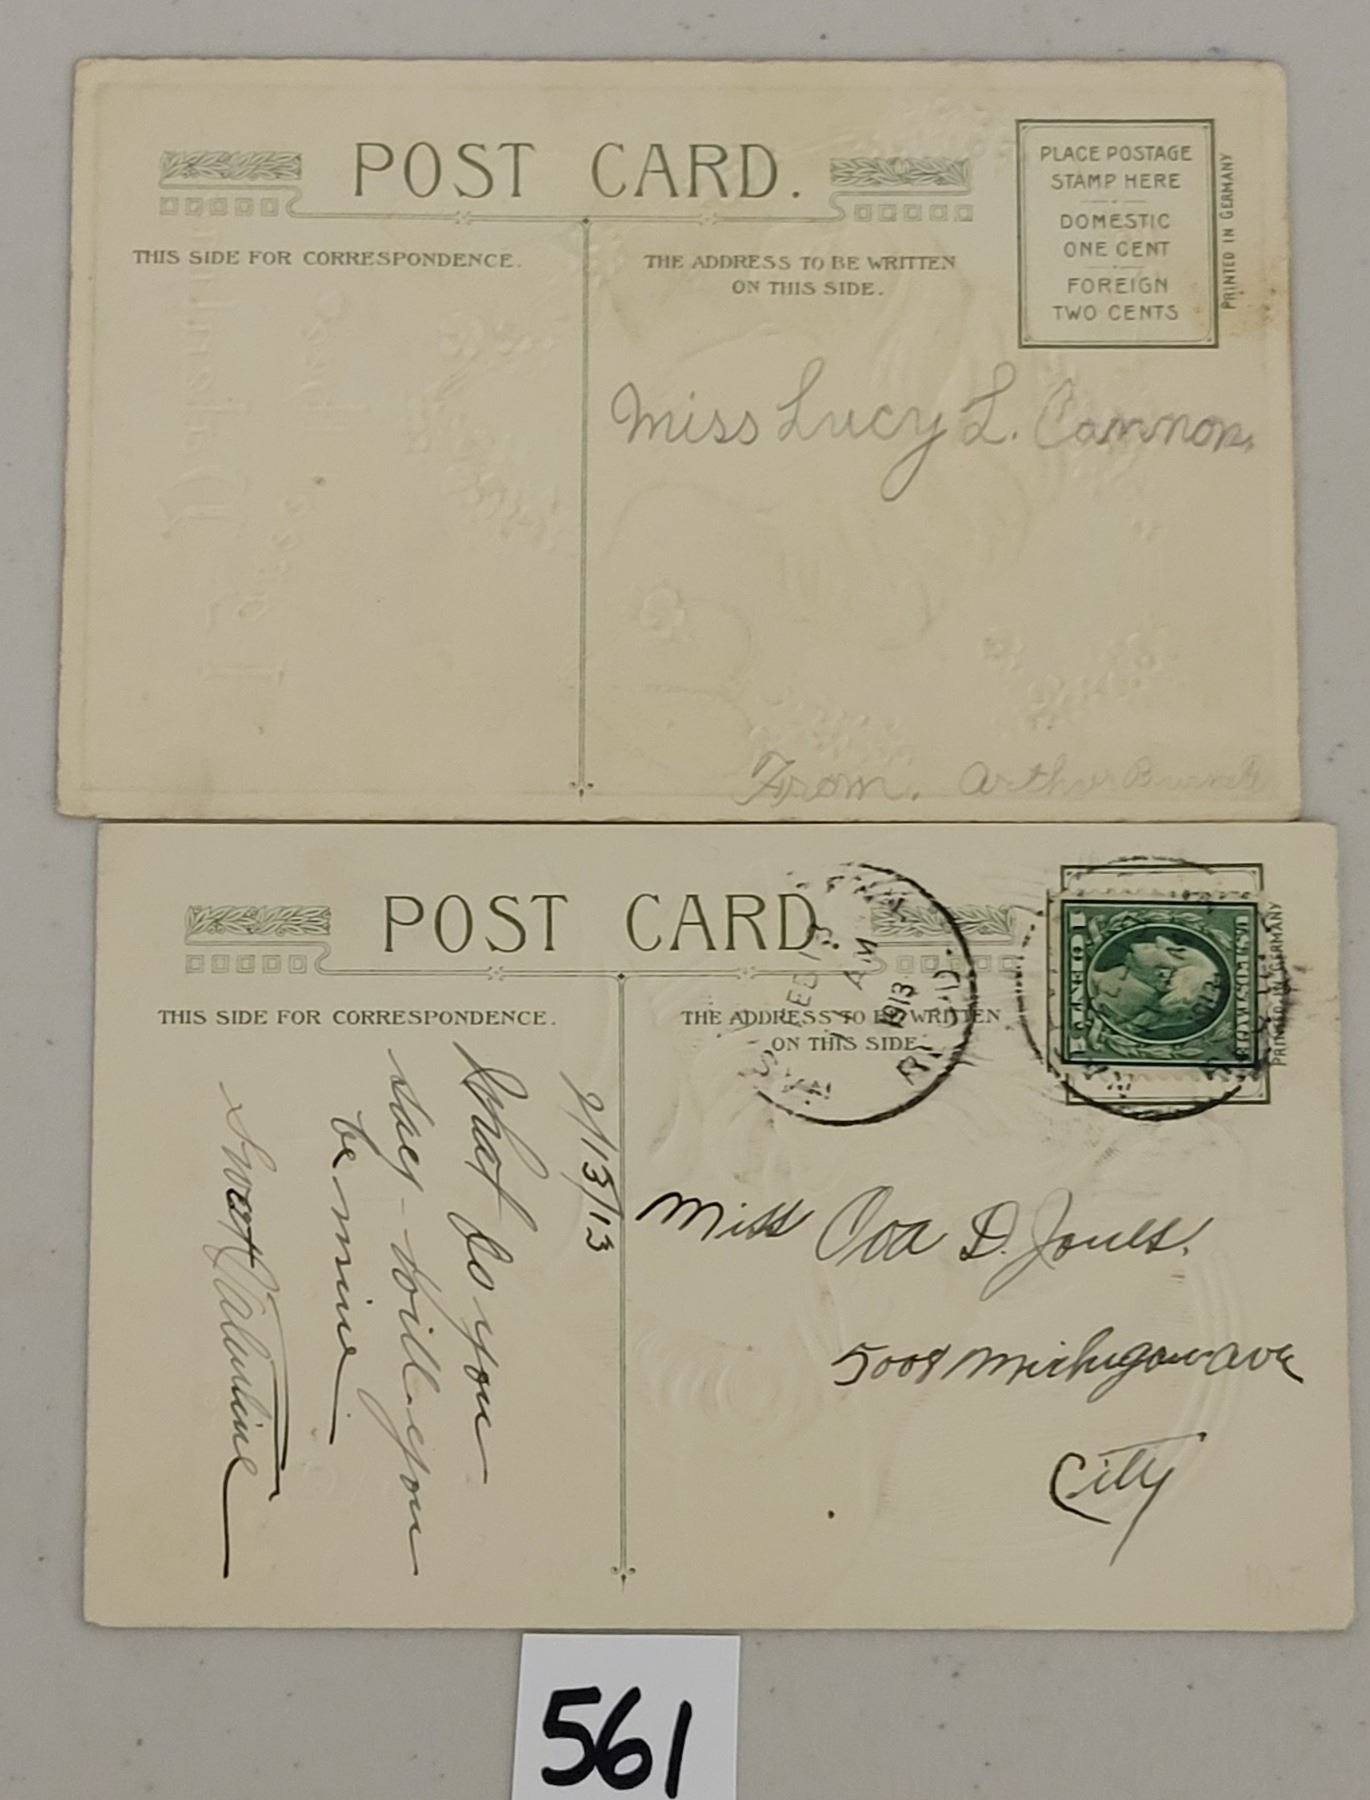 POST CARD.
THIS SIDE FOR CORRESPONDENCE.
THE ADDRESS TO BE WRITTEN
ON THIS SIDE.
PLACE POSTAGE
STAMP HERE
DOMESTIC
ONE CENT
FOREIGN
TWO CENTS
PRINTED IN GERMANY
Miss Lucy L. Cannon.
From. Arthur
POST CARD.
THIS SIDE FOR CORRESPONDENCE.
THE ADDRESS TO BE WRITTEN
ON THIS SIDE.
PRINTED IN GERMANY
FEB 13
AM
1913
2/13/13
What do you
say - Will you
be mine
Sweet Valentine
Miss D. Jones.
5008 Michigan ave
City
561